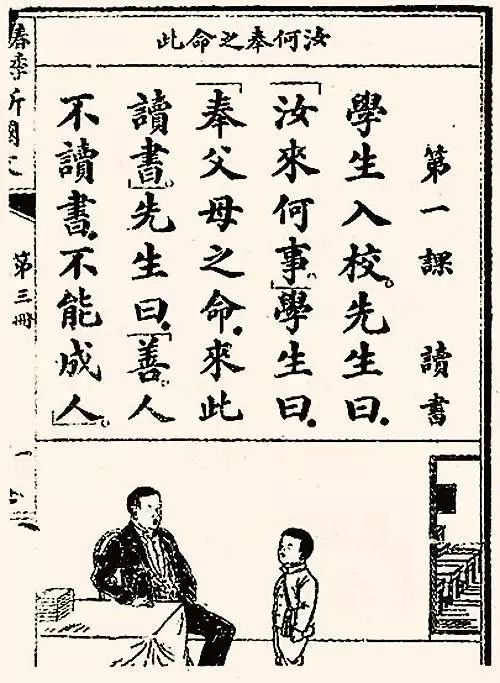 汝何奉之命此
第一課　讀書
學生入校。先生曰.
「汝來何事。」學生曰.
「奉父母之命.來此
讀書。」先生曰.「善。人
不讀書.不能成人。」
春季新國文
第三冊
一